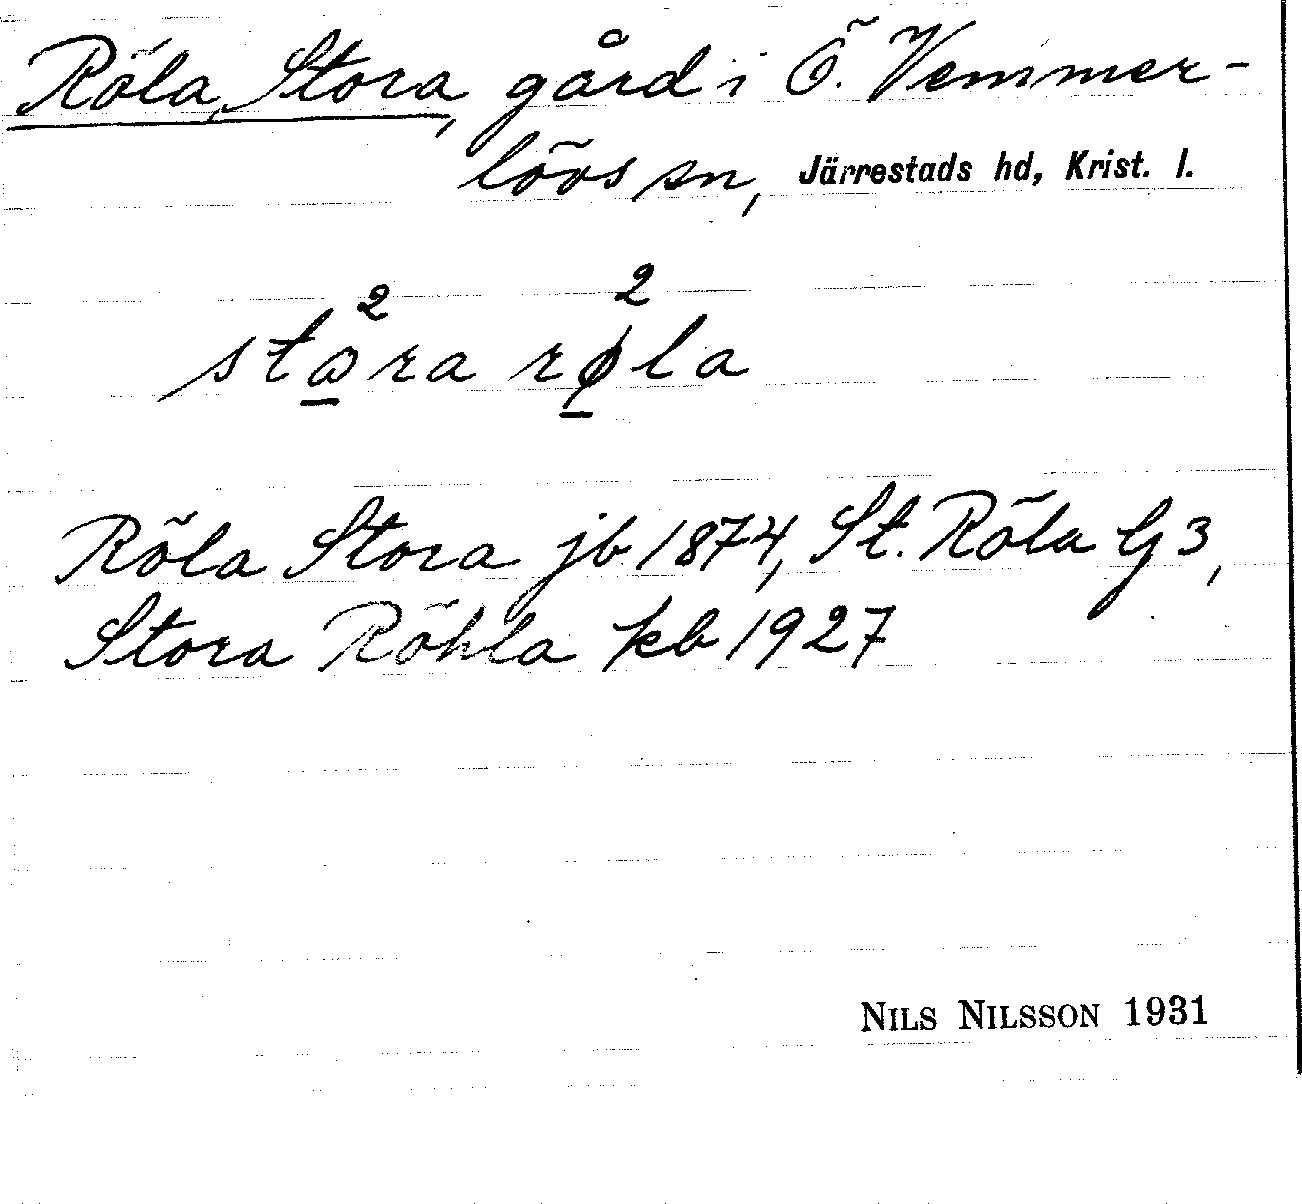 Röla, Stora, gård i Ö. Vemmer-
lövs sn, Järrestads hd, Krist. l.
2 2
stωra røla
Röla Stora jb 1874, St. Röla G 3,
Stora Röhla kb 1927
NILS NILSSON 1931